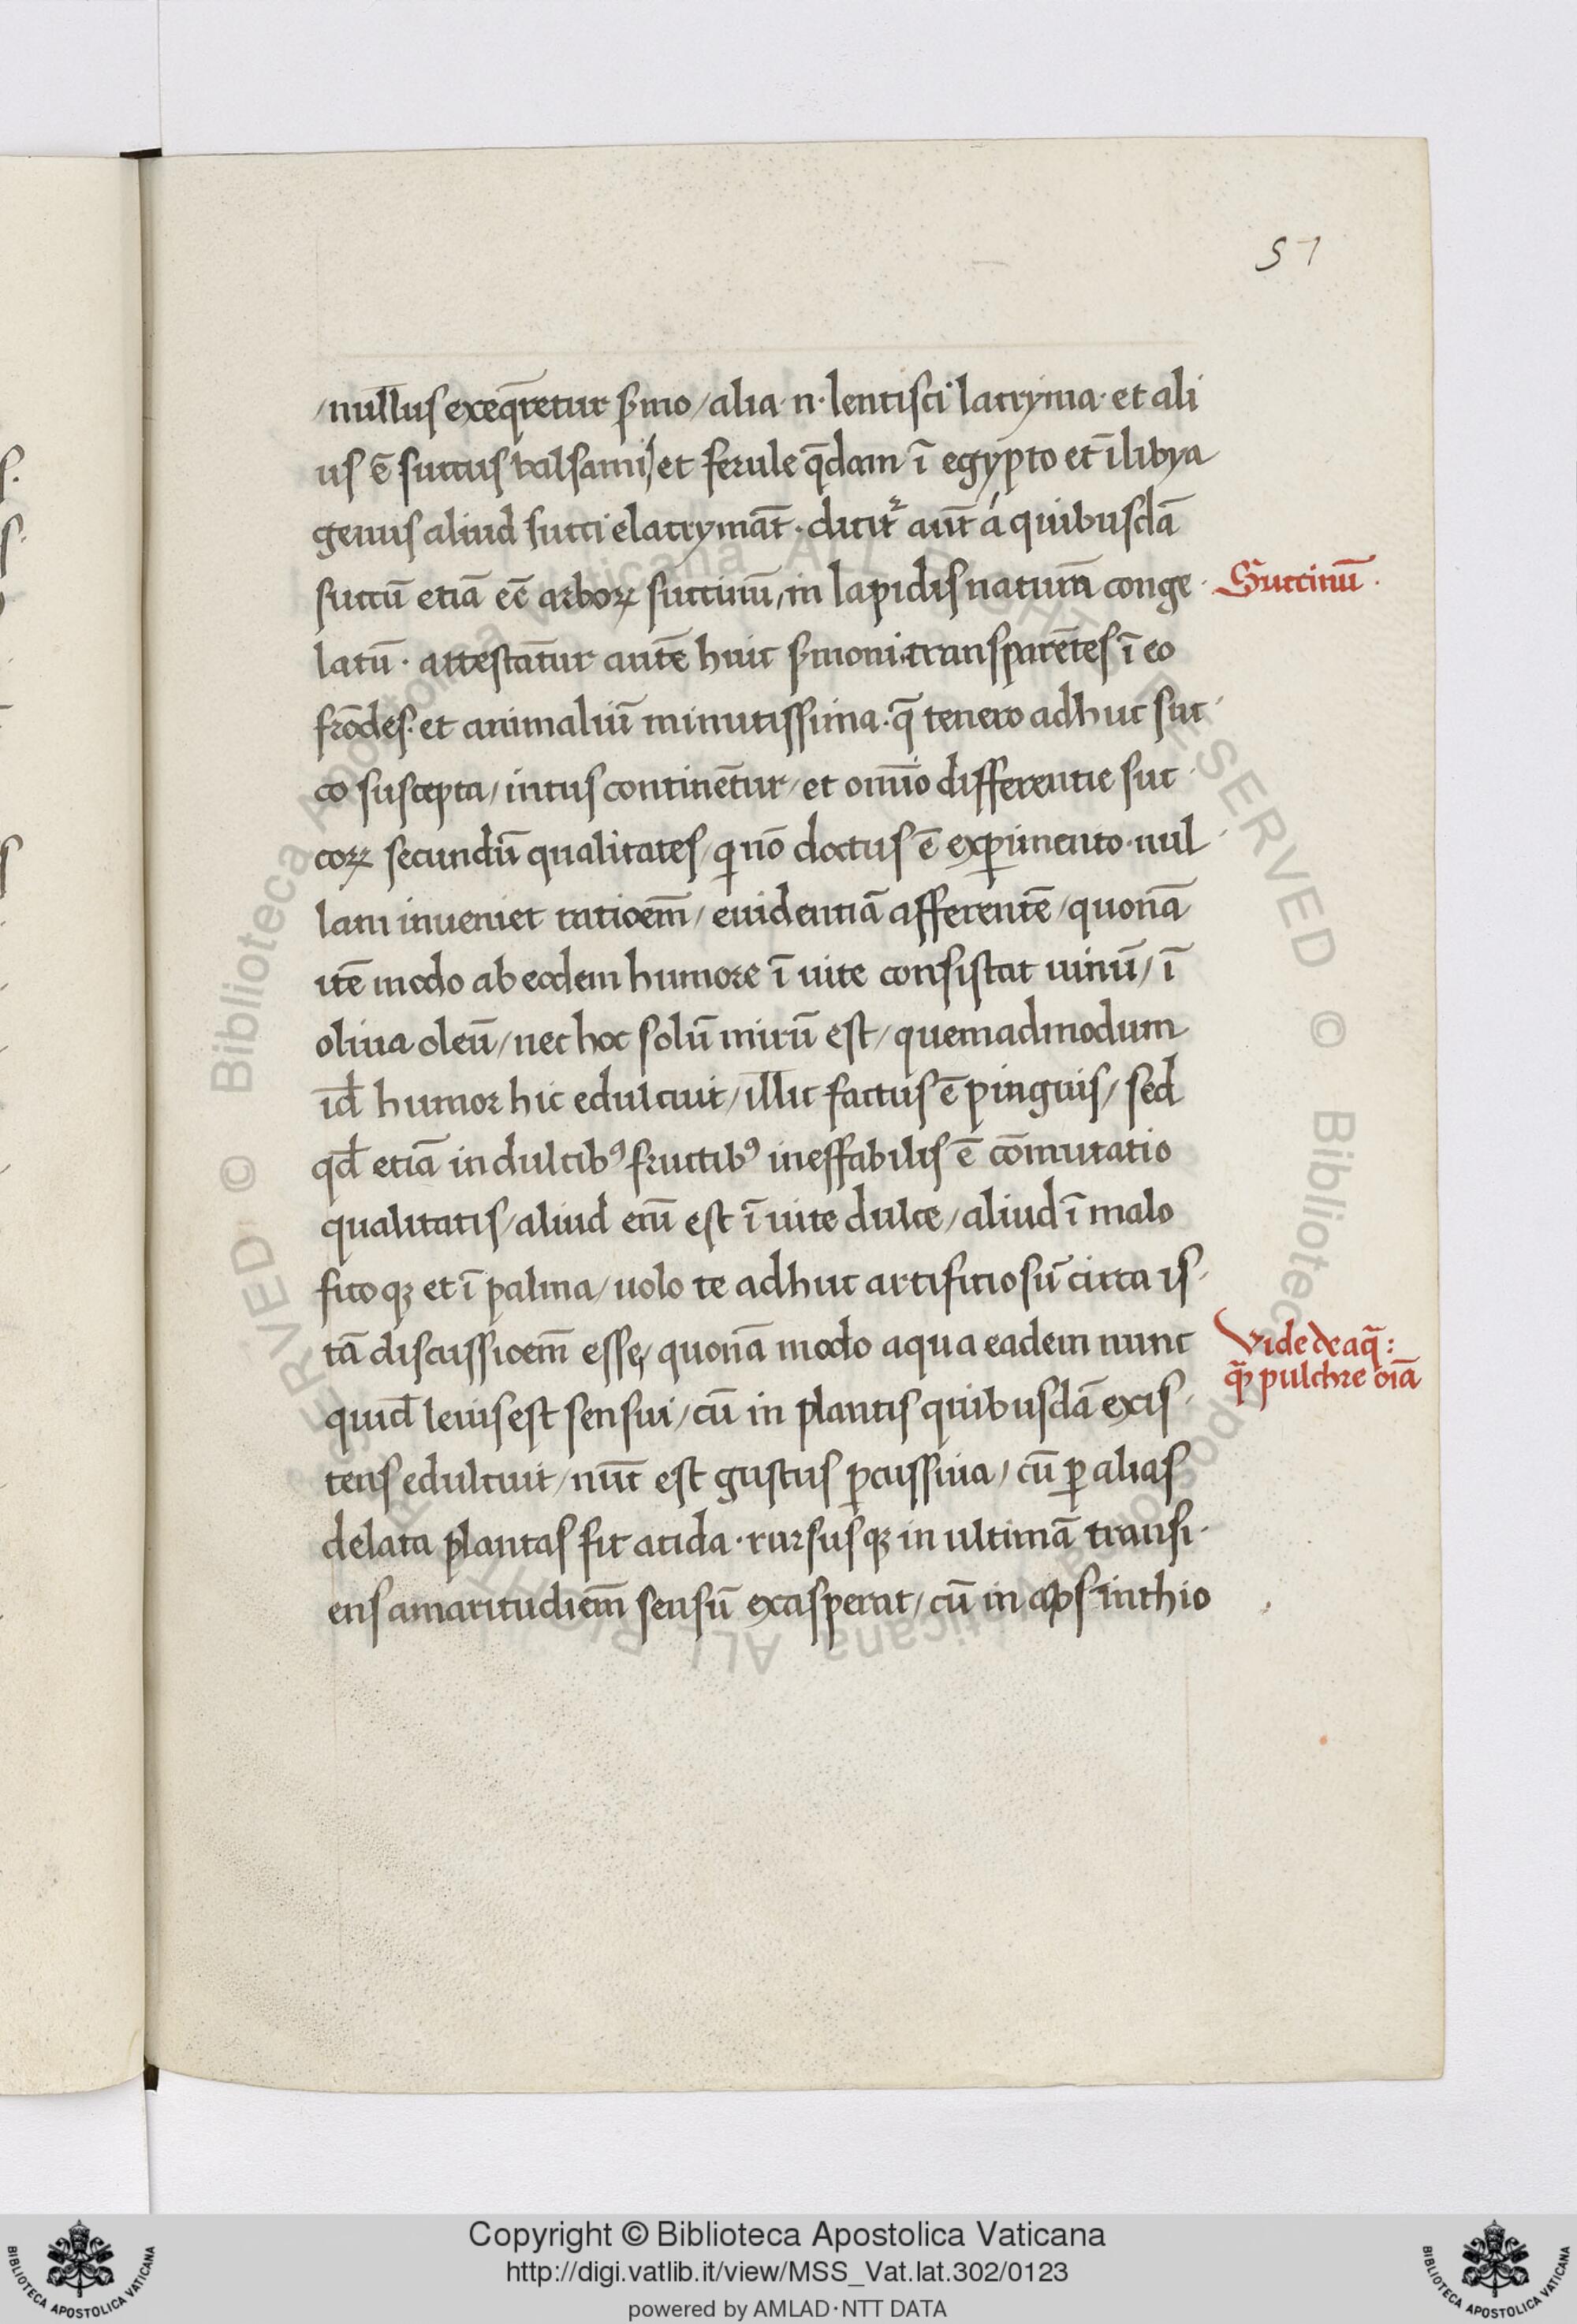 57
/nullus exeq̄retur s̄mo/alia·n·lentisci lacryma·et ali
us ē succus balsami/et ferule q̄dam ī egypto et ī libya
genus aliud succi elacrymāt·dicit᷑ aūt á quibusdā
succū etiā eē arboꝝ succinū/in lapidis naturā conge·
Succinū·
latū·attestantur autē huic s̄moni·transparētes ī eo
frōdes·et animaliū minutissima·q̄ tenero adhuc suc·
co suscepta/intus continētur/et om̄io differentie suc·
coꝝ secundū qualitates/qͥ nō doctus ē exꝑimento·nul·
lam inueniet ratioem̄/euidentiā afferentē/quonā
itē modo ab eodem humore ī uite consistat uinū/ī
oliua oleū/nec hoc solū mirū est/quemadmodum
id̄ humor hic edulcuit/illic factus ē pinguis/sed
qd̄ etiā in dulcibꝰ fructibꝰ ineffabilis ē cōmutatio
qualitatis/aliud eni̅ est ī uite dulce/aliud ī malo
ficoqꝫ et ī palma/uolo te adhuc artificiosū circa is·
tā discussioem̄ esse/quonā modo aqua eadem nunc
Vide de aq̄:
qͣꝫ pulchre oīa
quid̄ leuis est sensui/cū in plantis quibusdā exis·
tens edulcuit/nūc est gustus ꝑcussiua/cū ꝑ alias
delata plantas fit acida·rursusqꝫ in ultimā transi·
ens amaritudiem̄ sensū exasperat/cū in absinthio
© Biblioteca Apostolica Vaticana ALL RIGHTS RESERVED © Biblioteca Apostolica Vaticana ALL RIGHTS RESERVED
Copyright © Biblioteca Apostolica Vaticana
http://digi.vatlib.it/view/MSS_Vat.lat.302/0123
powered by AMLAD·NTT DATA
BIBLIOTECA APOSTOLICA VATICANA
BIBLIOTECA APOSTOLICA VATICANA